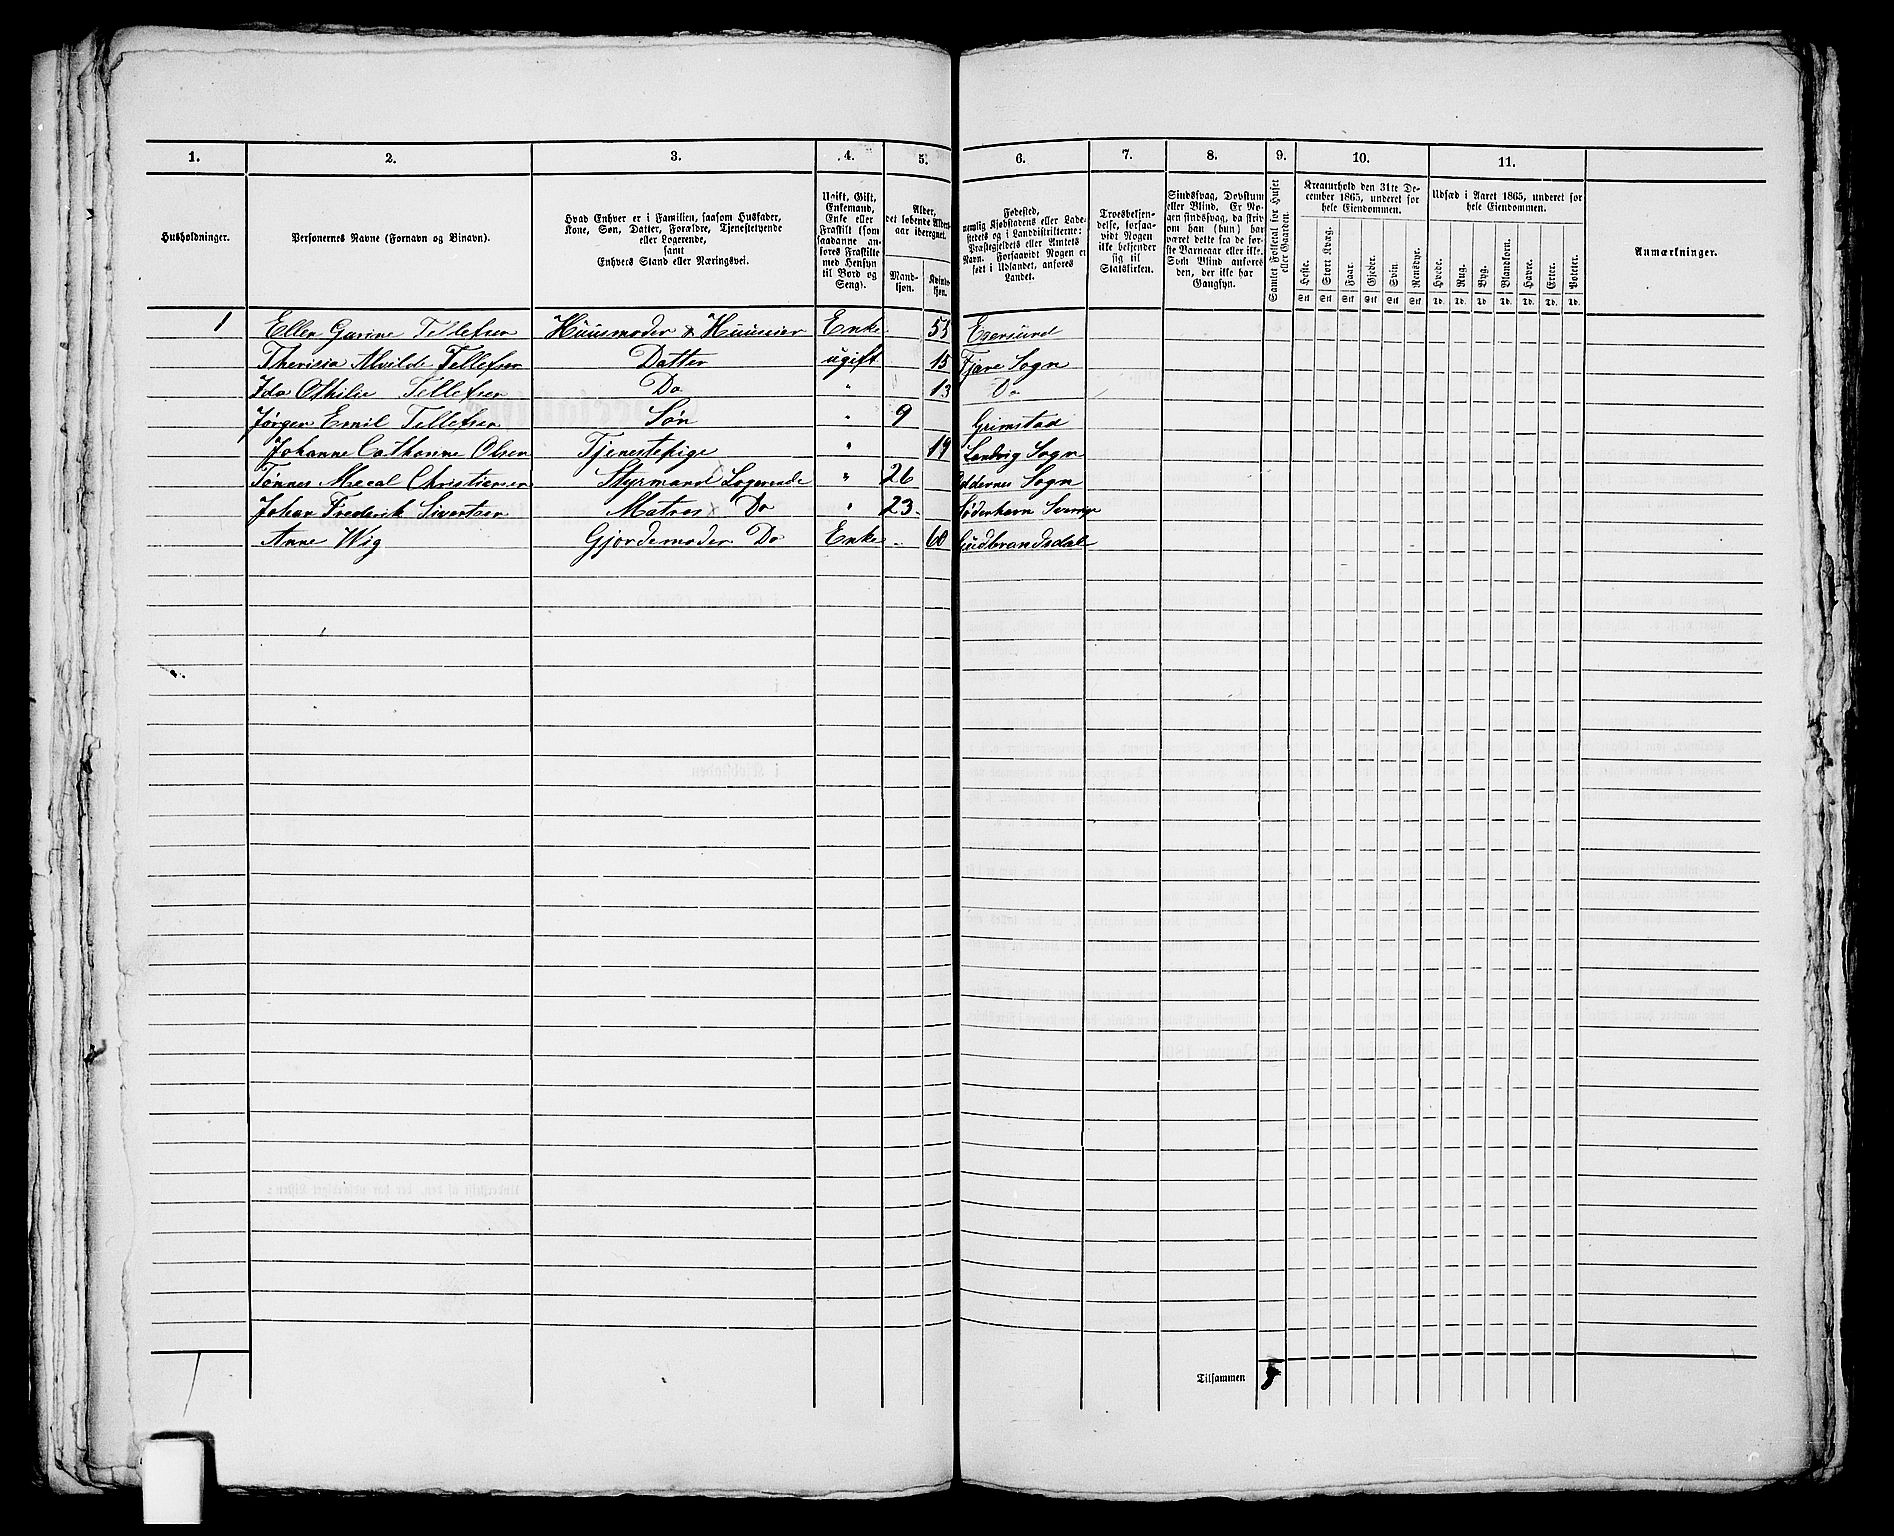 1. 2. 3. 4. 5. 6. 7. 8. 9. 10. 11.
Husholdninger.
Personernes Navne (Fornavn og Binavn).
Hvad Enhver er i Familien, saasom Husfader,
Kone, Søn, Datter, Forældre, Tjenestetyende
eller Logerende,
samt
Enhvers Stand eller Næringsvei.
Ugift, Gift,
Enkemand,
Enke eller
Fraskilt (som
saadanne an-
føres Fraskilte
med Hensyn
til Bord og
Seng).
Alder,
det løbende Alders-
aar iberegnet.
Mand-
kjøn.
Kvinde-
kjøn.
Fødested,
nemlig Kjøbstadens eller Lade-
stedets og i Landdistrikterne:
Præstegjeldets eller Amtets
Navn. Forsaavidt Nogen er
født i Udlandet, anføres
Landet.
Troesbekjen-
delse, forsaa-
vidt Nogen
ikke bekjender
sig til
Statskirken.
Sindssvag, Døvstum
eller Blind. Er No-
gen sindssvag, da skriv
om han (hun) har
været dette fra de før-
ste Barneaar eller ikke.
Som Blind anføres
den, der ikke har
Gangsyn.
Samlet Folketal for Huset
eller Gaarden.
Kreaturhold den 31te De-
cember 1865, underet for
hele Eiendommen.
Heste.
Stort Kvæg.
Faar.
Gjeder.
Svin.
Rensdyr.
Stk Stk Stk Stk Stk Stk
Udsæd i Aaret 1865, underet for
hele Eiendommen.
Hvede.
Rug.
Byg.
Blandkorn.
Havre.
Erter.
Poteter.
Td. Td. Td Td. Td. Td. Td.
Anmærkninger.
1 Ellen Garine Tellefsen Huusmoder & Huuseier Enke 55 Egersund
Theresia Alvilde Tellefsen Datter ugift 15 Fjære Sogn
Ida Othilie Tellefsen Do " 13 Do
Jørgen Emil Tellefsen Søn " 9 Grimstad
Johanne Cathanne Olsen Tjenestepige " 19 Landvig Sogn
Tønnes Mecal Christiansen Styrmand Logerende " 26 Oddernes Sogn
Johan Frederik Sivertsen Matros Do " 23 Søderhavn Sverrige
Anne Wig Gjordemoder Do Enke 60 Gudbrandsdal
Tilsammen